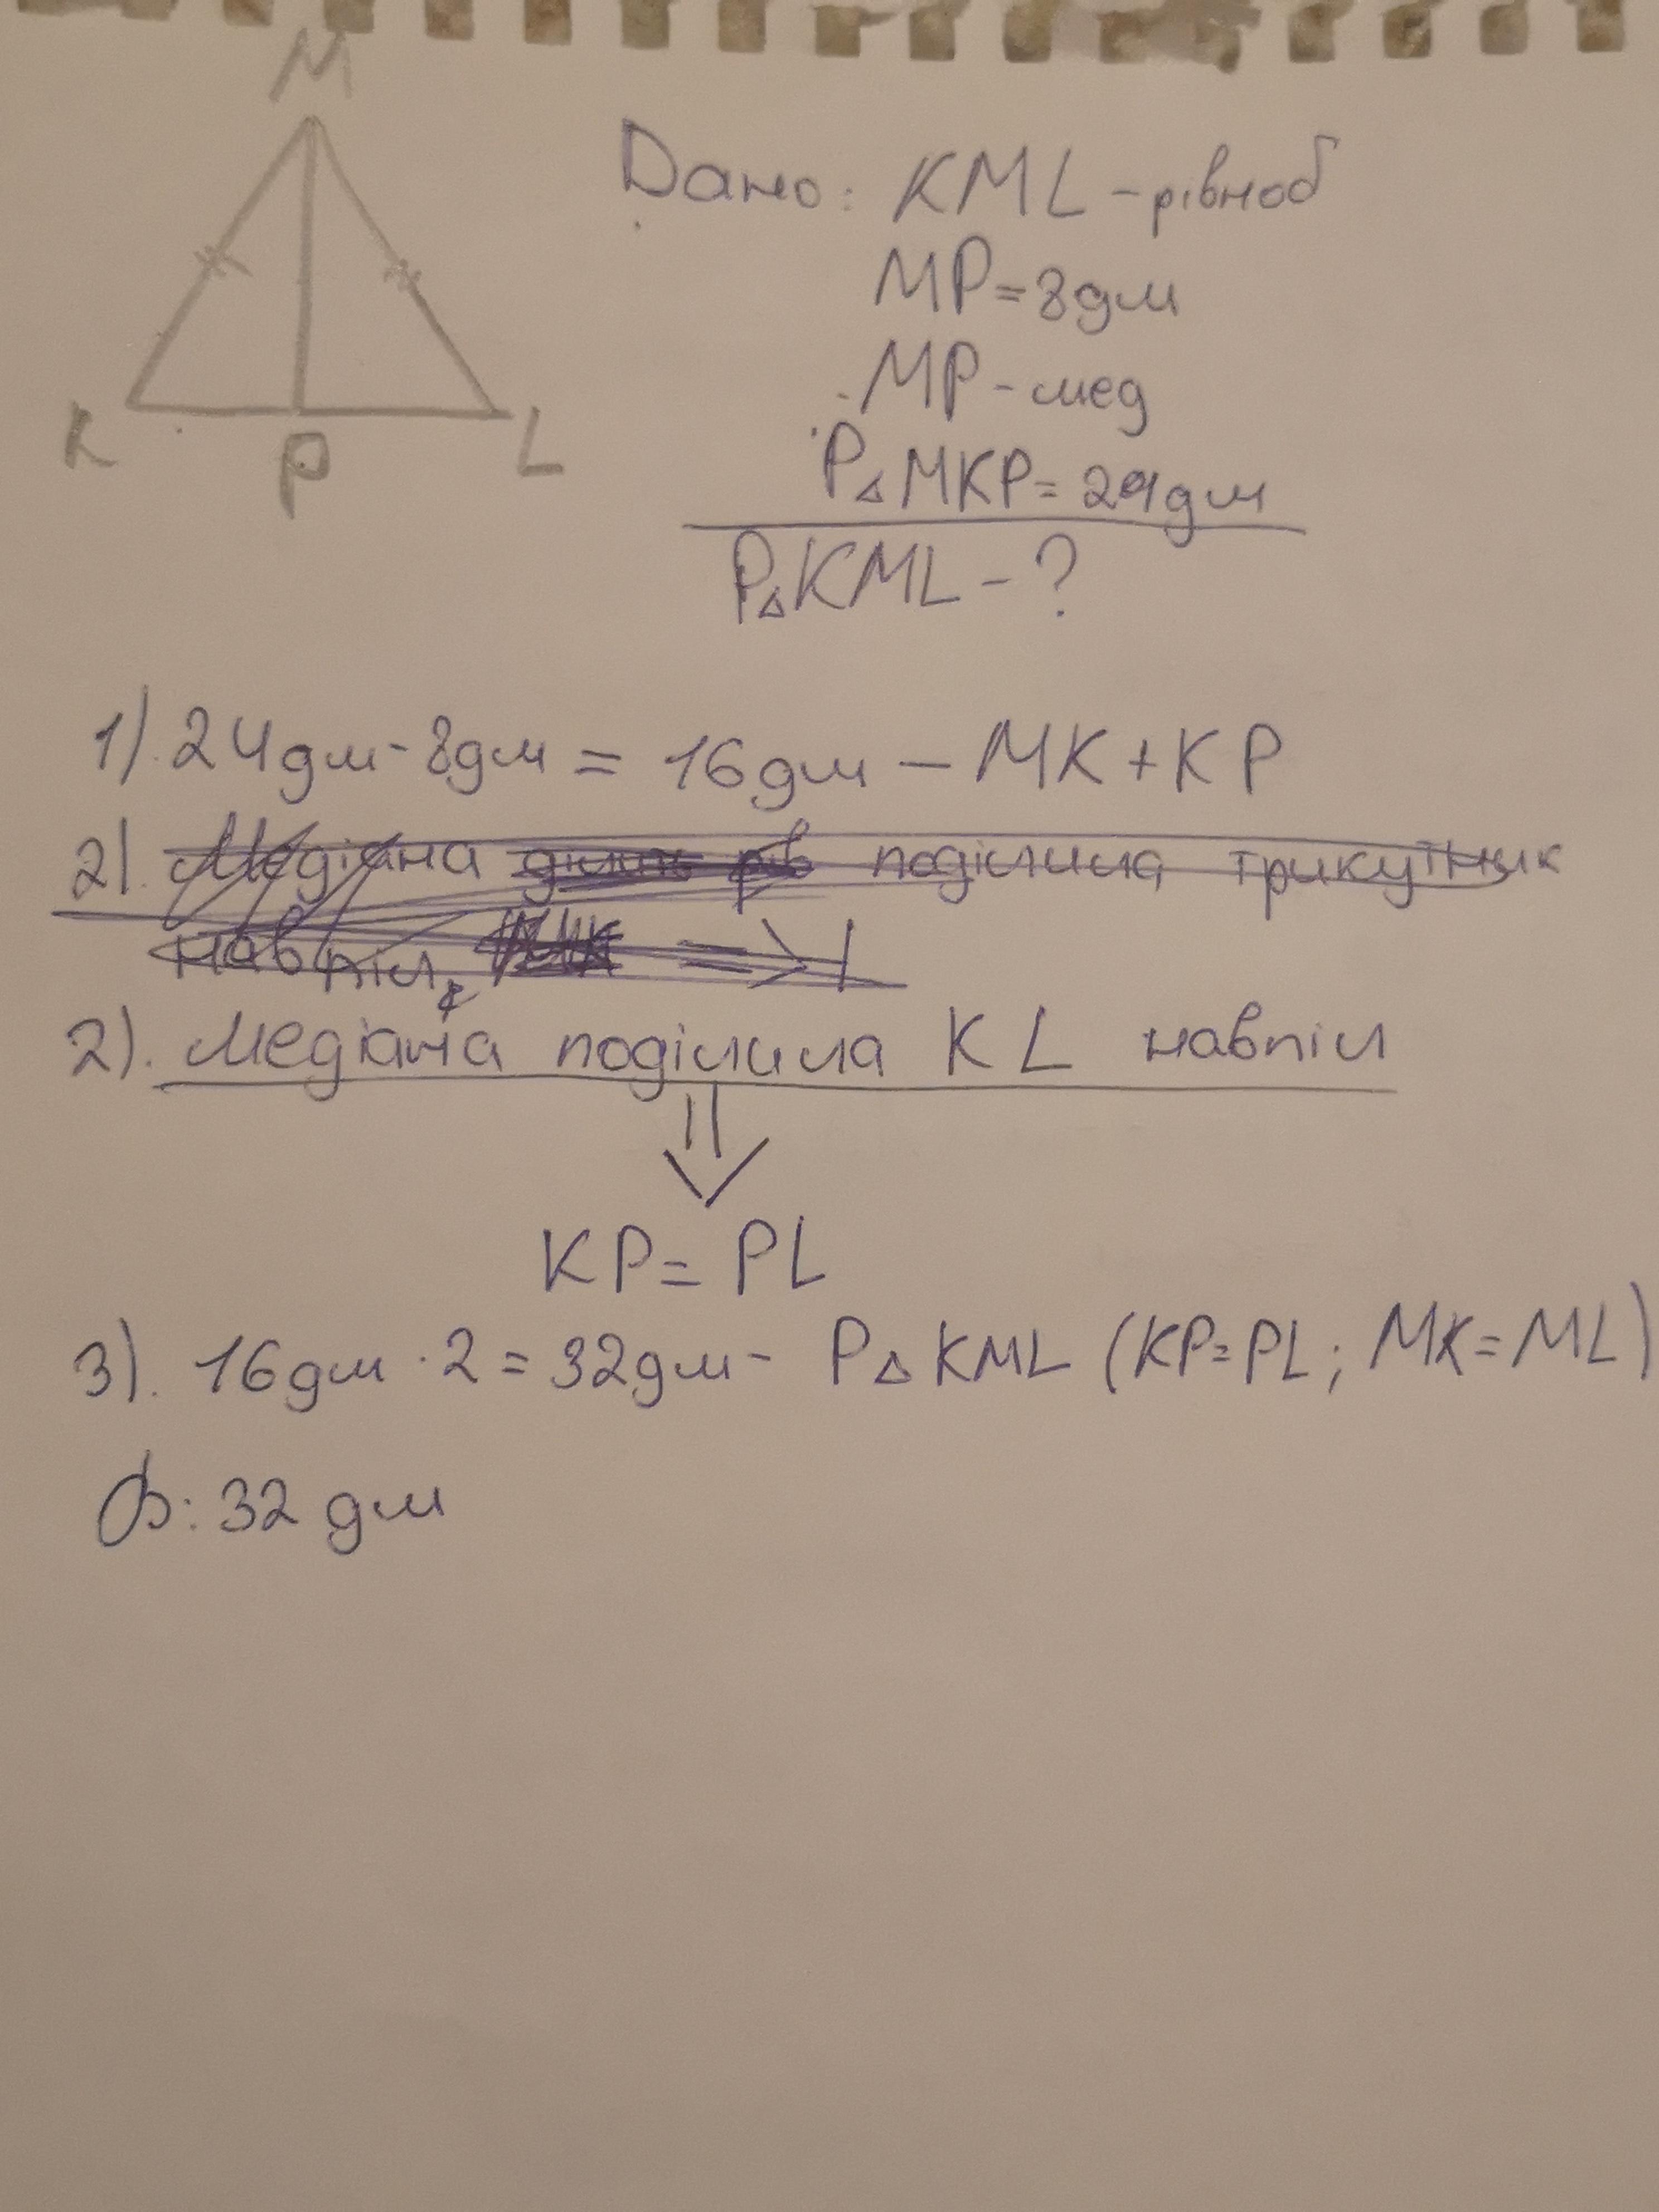 M
K
P
L
Дано: KML - рівноб
MP = 8 дм
MP - мед
P△MKP = 24 дм
P△KML - ?
1). 24дм - 8дм = 16дм - MK + KP
2). Медіана ділить рів поділила трикутник
навпіл, =>
2). Медіана поділила KL навпіл
KP = PL
3). 16дм · 2 = 32дм - P△KML (KP = PL; MK = ML)
В: 32 дм